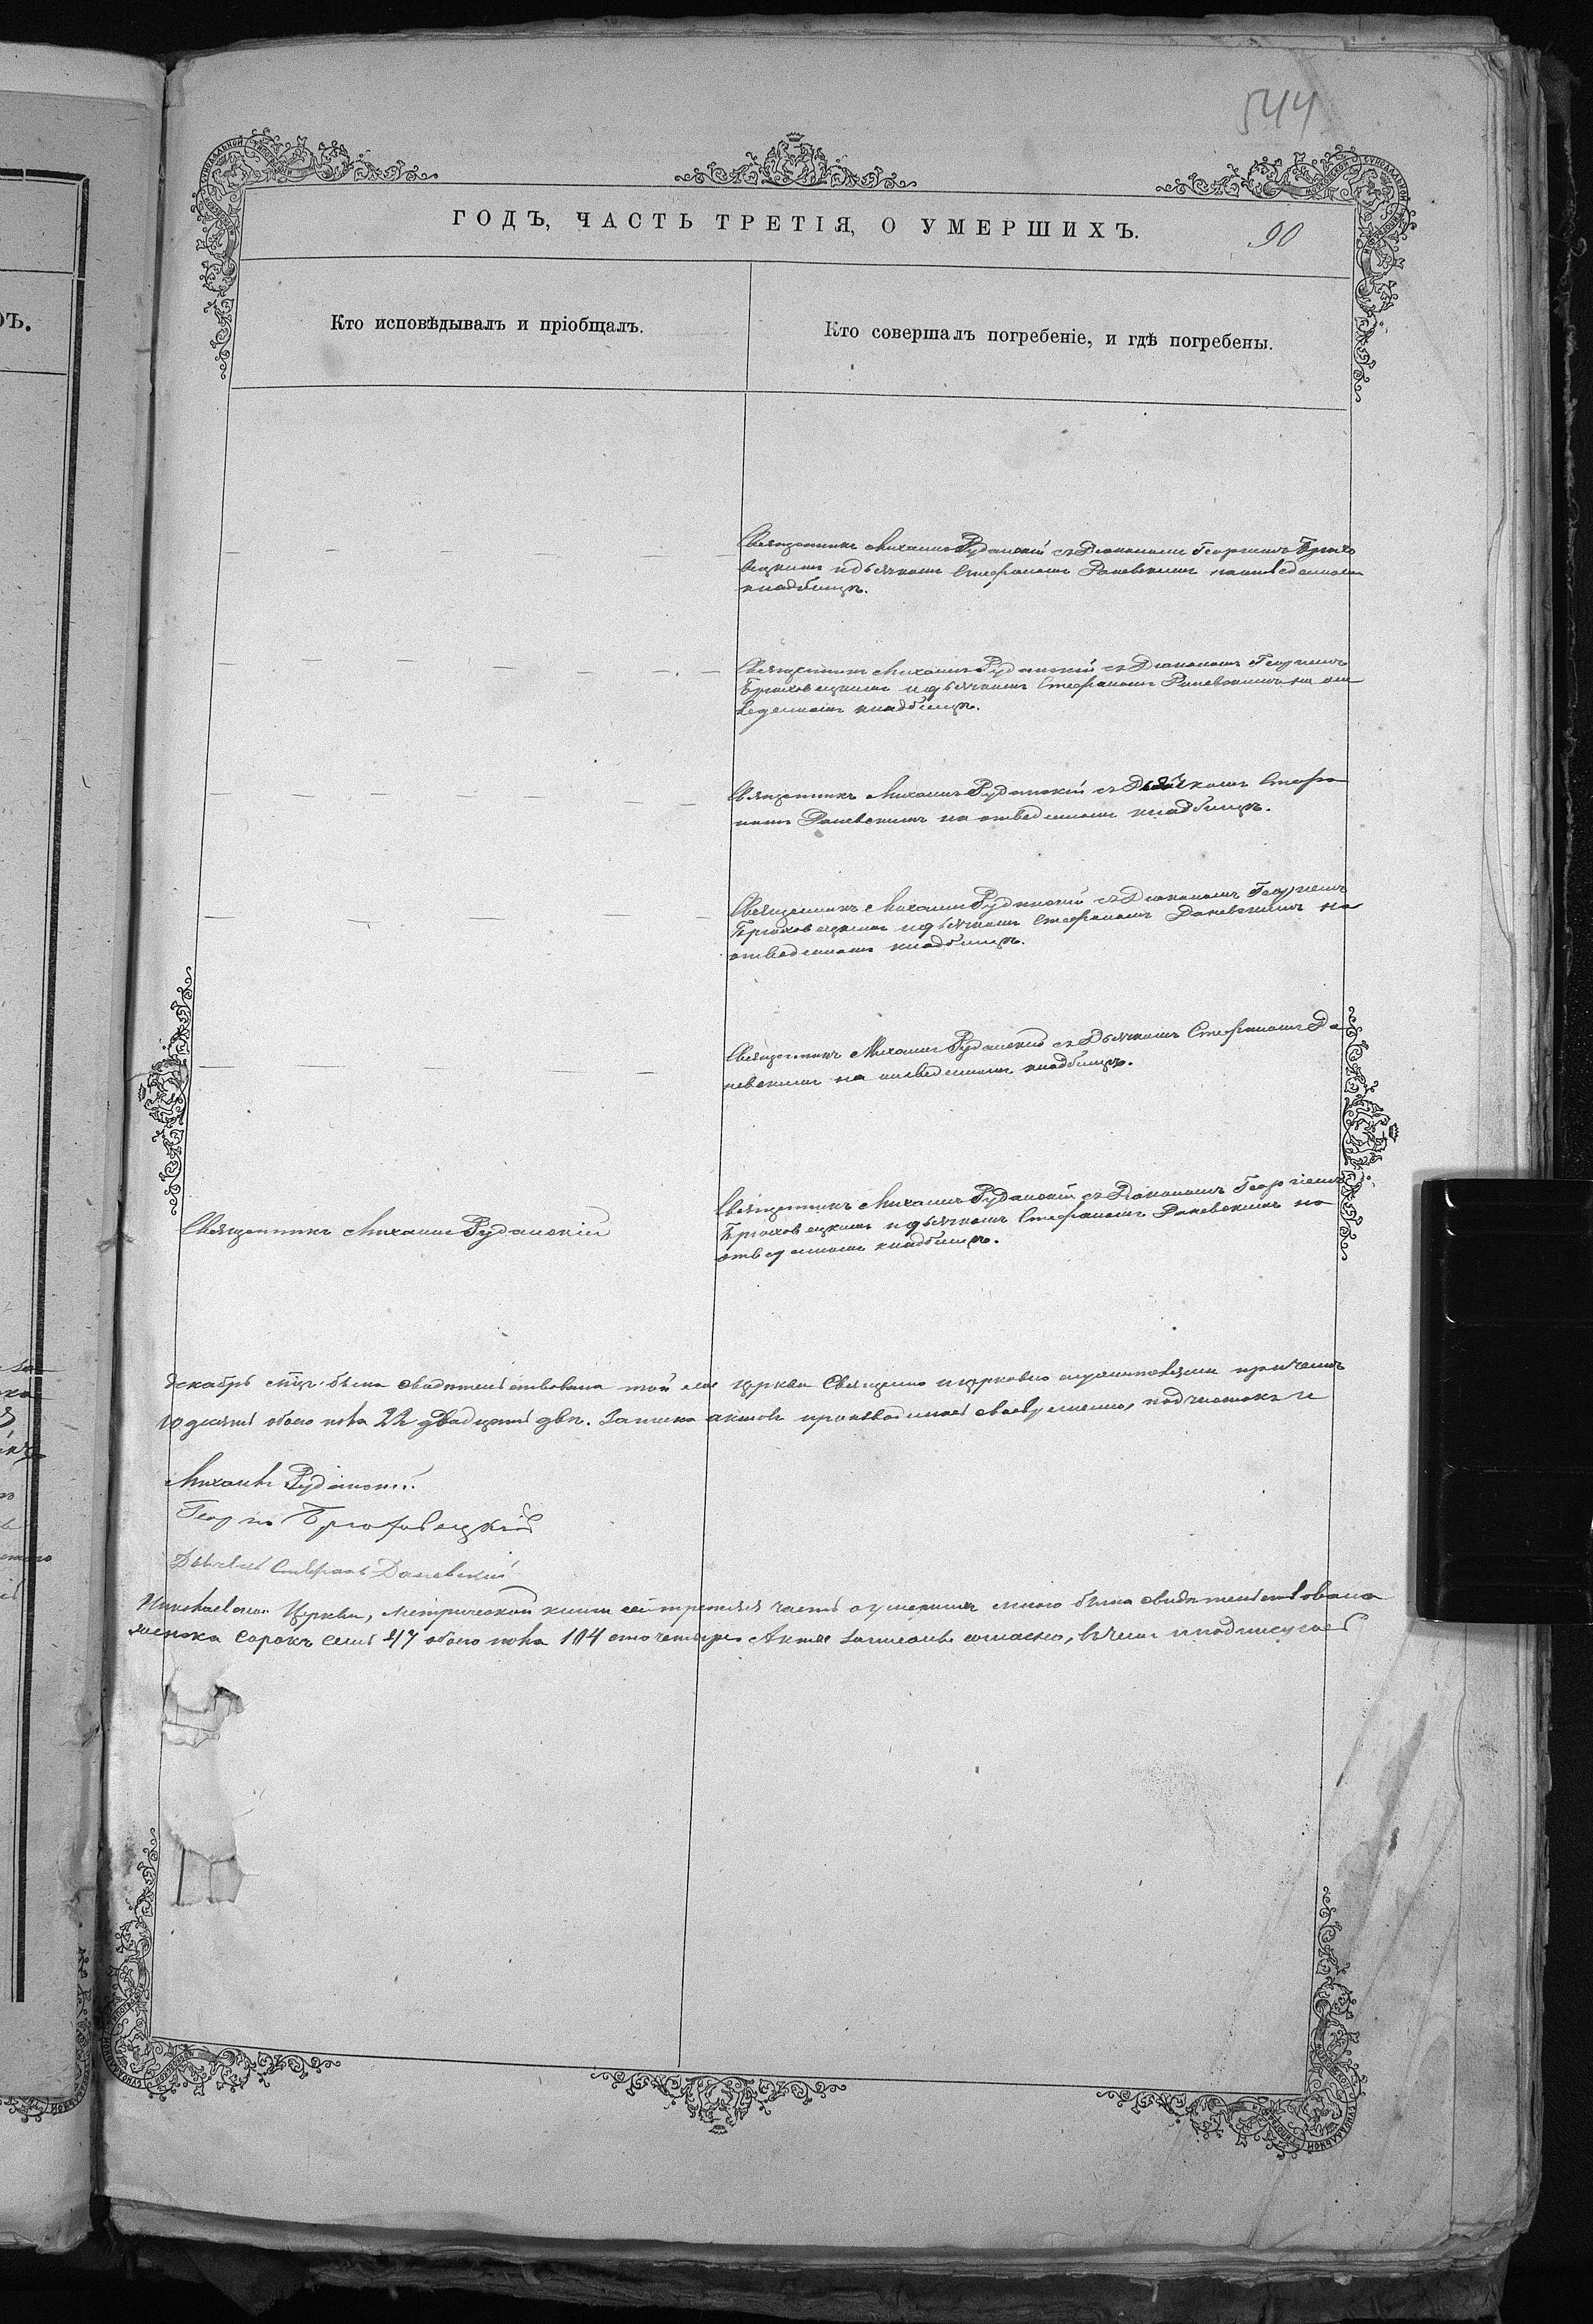 544
ГОДЪ, ЧАСТЬ ТРЕТІЯ, О УМЕРШИХЪ.
90
Кто исповѣдывалъ и пріобщалъ.
Кто совершалъ погребеніе, и гдѣ погребены.
Священникъ Михаилъ Руданскій съ Діакономъ Георгіемъ Брюхо
вецкимъ и дьячкомъ Стефаномъ Даневскимъ на отведенномъ
кладбищѣ.
Священникъ Михаилъ Руданскій съ Діакономъ Георгіемъ
Брюховецкимъ и дьячкомъ Стефаномъ Даневскимъ на от
веденномъ кладбищѣ.
Священникъ Михаилъ Руданскій съ Дьячкомъ Стефа
номъ Даневскимъ на отведенномъ кладбищѣ.
Священникъ Михаилъ Руданскій съ Діакономъ Георгіемъ
Брюховецкимъ и дьячкомъ Стефаномъ Даневскимъ на
отведенномъ кладбищѣ.
Священникъ Михаилъ Руданскій съ Дьячкомъ Стефаномъ Да
невскимъ на отведенномъ кладбищѣ.
Священникъ Михаилъ Руданскій
Священникъ Михаилъ Руданскій съ Діакономъ Георгіемъ
Брюховецкимъ и дьячкомъ Стефаномъ Даневскимъ на
отведенномъ кладбищѣ.
декабрь была свидѣтельствована той же церкви Священно и церковно служителями причемъ
10 десять обоего пола 22 двадцать два. Записка актовъ производилась своевременно, подчистокъ и
Михаилъ Руданскій
Георгій Брюховецкій
Дьячекъ Стефанъ Даневскій
Николаевской Церкви, метрической книги сей третья часть о умершихъ мною была свидѣтельствована
женска сорокъ семь 47 обоего пола 104 сто четыре. Акты записаны согласно, въ чемъ и подписуюсь